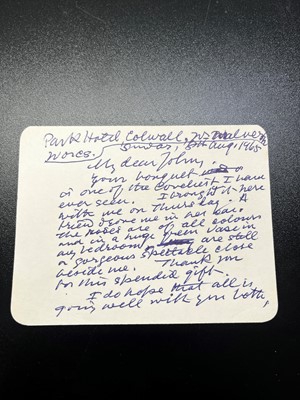 Park Hotel Colwall, Nr Malvern
Worcs. Sunday, 8th Aug. 1965
My dear John,
Your bouquet
is one of the loveliest I have
ever seen. I brought it here
with me on Thursday. A
friend drove me in her car.
The roses are of all colours
and in a huge green vase in
my bedroom are still
a gorgeous spectacle close
beside me. Thank you
for this splendid gift.
I do hope that all is
going well with you both,